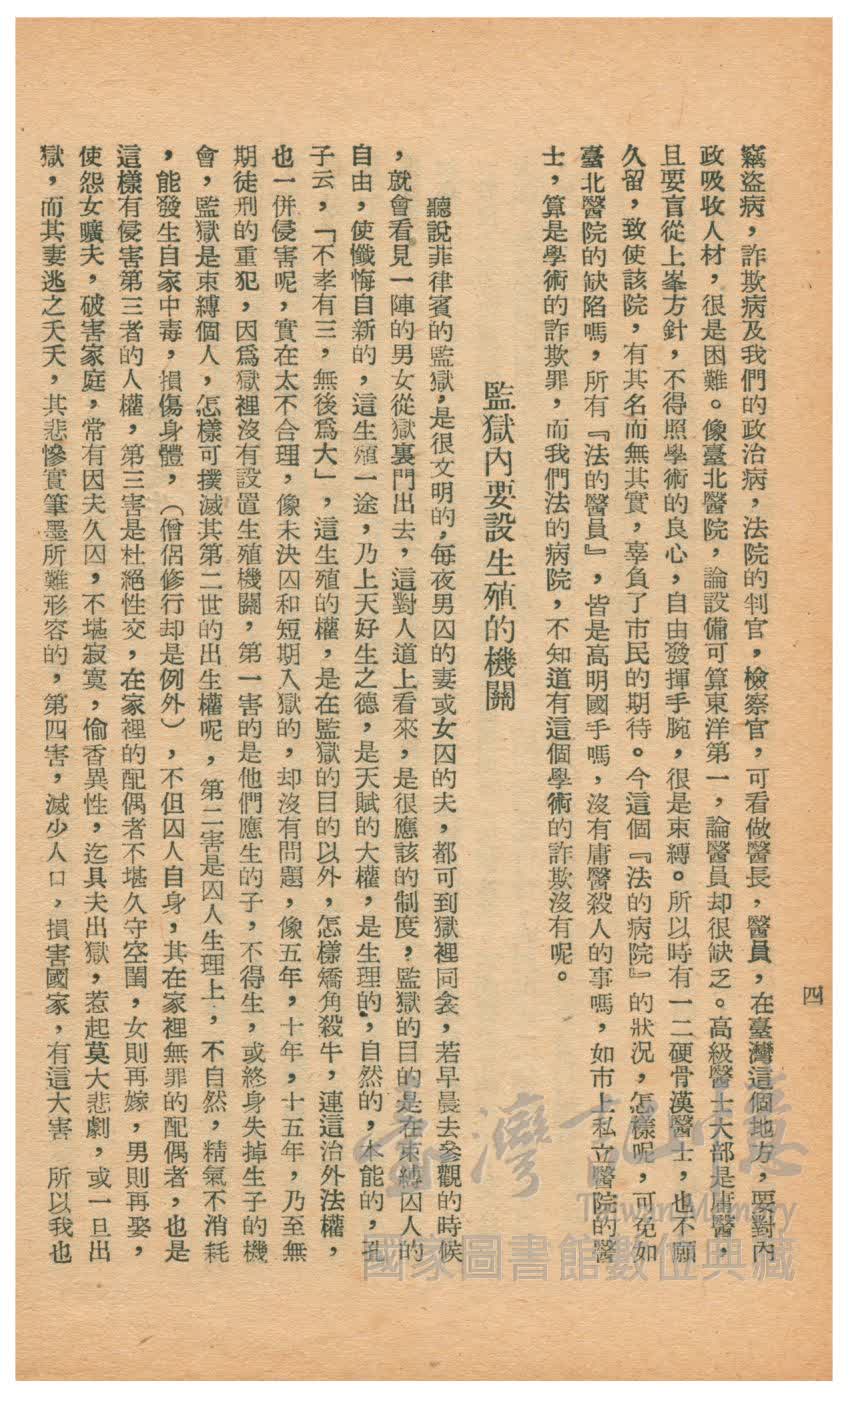 四
竊盜病，詐欺病及我們的政治病，法院的判官，檢察官，可看做醫長，醫員，在臺灣這個地方，要對內
政吸收人材，很是困難。像臺北醫院，論設備可算東洋第一，論醫員却很缺乏。高級醫士大部是庸醫，
且要盲從上峯方針，不得照學術的良心，自由發揮手腕，很是束縛。所以時有一二硬骨漢醫士，也不願
久留，致使該院，有其名而無其實，辜負了市民的期待。今這個『法的病院』的狀況，怎樣呢，可免如
臺北醫院的缺陷嗎，所有『法的醫員』，皆是高明國手嗎，沒有庸醫殺人的事嗎，如市上私立醫院的醫
士，算是學術的詐欺罪，而我們法的病院，不知道有這個學術的詐欺沒有呢。
監獄內要設生殖的機關
聽說菲律賓的監獄，是很文明的，每夜男囚的妻或女囚的夫，都可到獄裡同衾，若早晨去叅觀的時候
，就會看見一陣的男女從獄裏門出去，這對人道上看來，是很應該的制度，監獄的目的是在束縛囚人的
自由，使懺悔自新的，這生殖一途，乃上天好生之德，是天賦的大權，是生理的，自然的，本能的，孔
子云，「不孝有三，無後爲大」，這生殖的權，是在監獄的目的以外，怎樣矯角殺牛，連這治外法權，
也一併侵害呢，實在太不合理，像未決囚和短期入獄的，却沒有問題，像五年，十年，十五年，乃至無
期徒刑的重犯，因爲獄裡沒有設置生殖機關，第一害的是他們應生的子，不得生，或終身失掉生子的機
會，監獄是束縛個人，怎樣可撲滅其第二世的出生權呢，第二害是囚人生理上，不自然，精氣不消耗
，能發生自家中毒，損傷身體，（僧侶修行却是例外），不但囚人自身，其在家裡無罪的配偶者，也是
這樣有侵害第三者的人權，第三害是杜絕性交，在家裡的配偶者不堪久守空閨，女則再嫁，男則再娶，
使怨女曠夫，破害家庭，常有因夫久囚，不堪寂寞，偷香異性，迄具夫出獄，惹起莫大悲劇，或一旦出
獄，而其妻逃之夭夭，其悲慘實筆墨所難形容的，第四害，減少人口，損害國家，有這大害　所以我也
臺灣記憶
Taiwan Memory
國家圖書館數位典藏